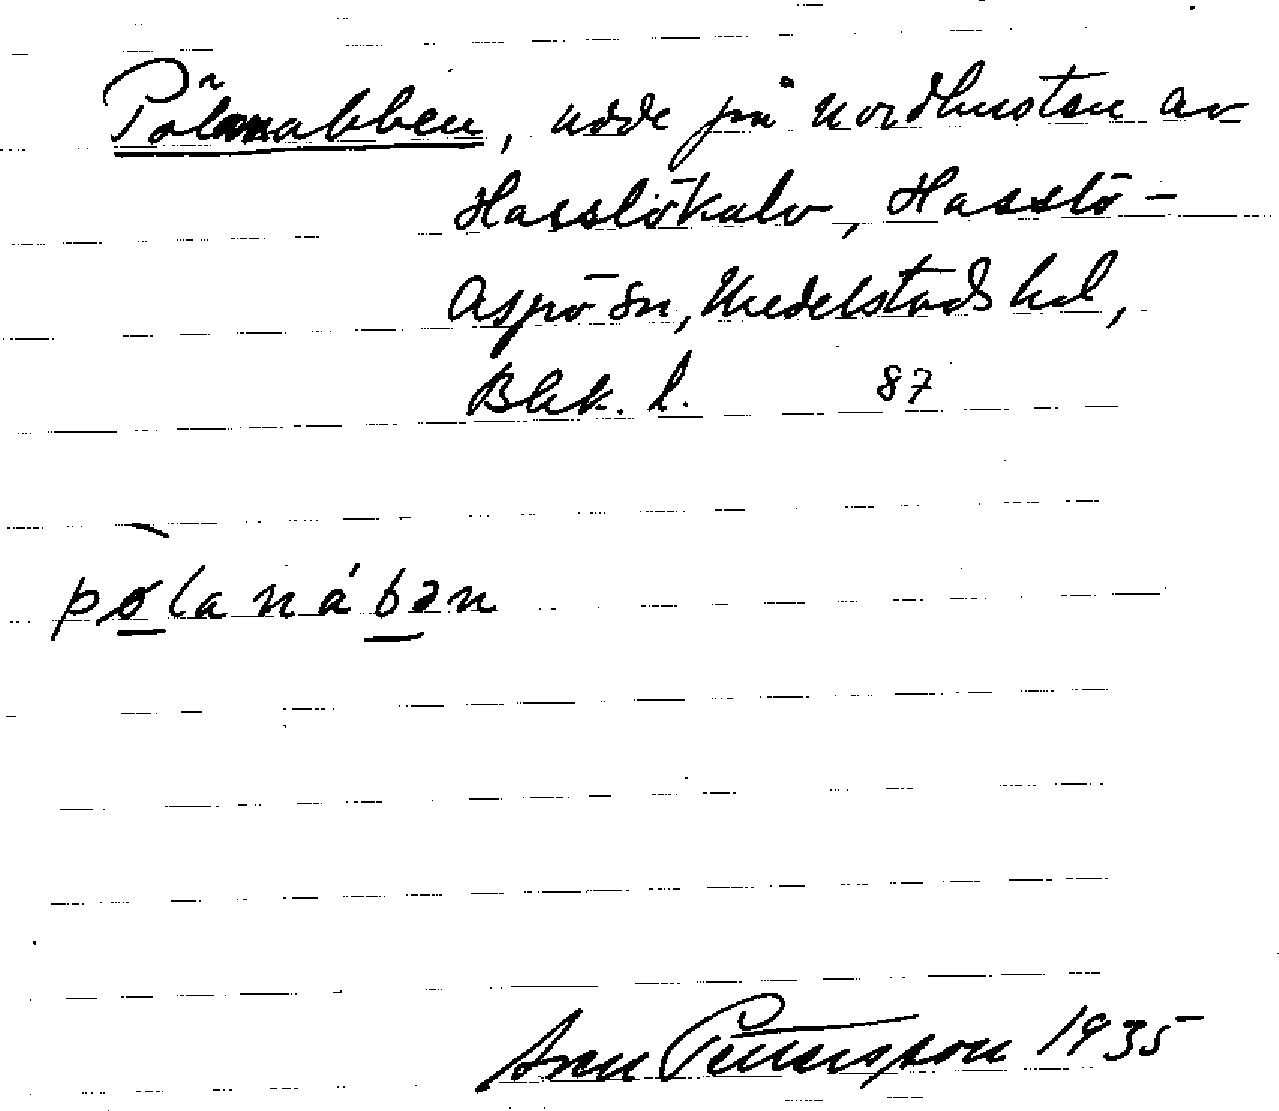 Pölanabben, udde på nordkusten av
Hasslökalv, Hasslö-
Aspö sn, Medelstads hd,
Blek. l. 87
pölanábən
Sven Pettersson 1935